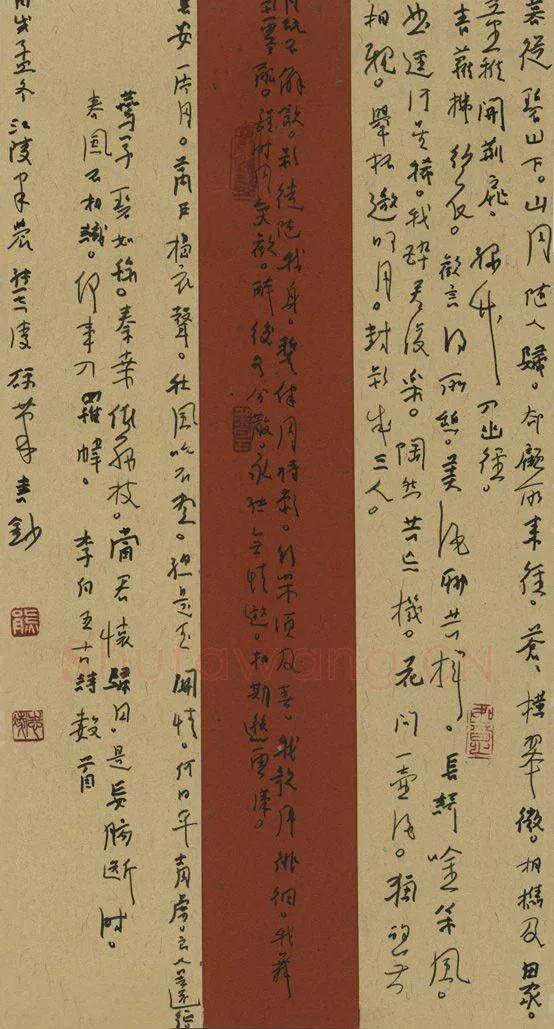 暮從碧山下。山月隨人歸。卻顧所来徑。蒼〻橫翠微。相携及田家。
童稚開荊扉。綠竹入幽徑。
青蘿拂行衣。歡言得所憩。美酒聊共揮。長歌吟松風。
曲盡河星稀。我醉君復樂。陶然共忘機。花間一壺酒。獨酌無
相親。舉杯邀明月。對影成三人。
月既不解飲。影徒隨我身。暫伴月將影。行樂須及春。我歌月徘徊。我舞
影零亂。醒時同交歡。醉後各分散。永結無情遊。相期邈雲漢。
長安一片月。萬戶擣衣聲。秋風吹不盡。總是玉關情。何日平胡虜。良人罷遠征
燕草碧如絲。秦桑低綠枝。當君懷歸日。是妾腸斷時。
春風不相識。何事入羅幃。李白五古詩數首
丙戌孟冬江陵 書鈔
Shufawang.CN